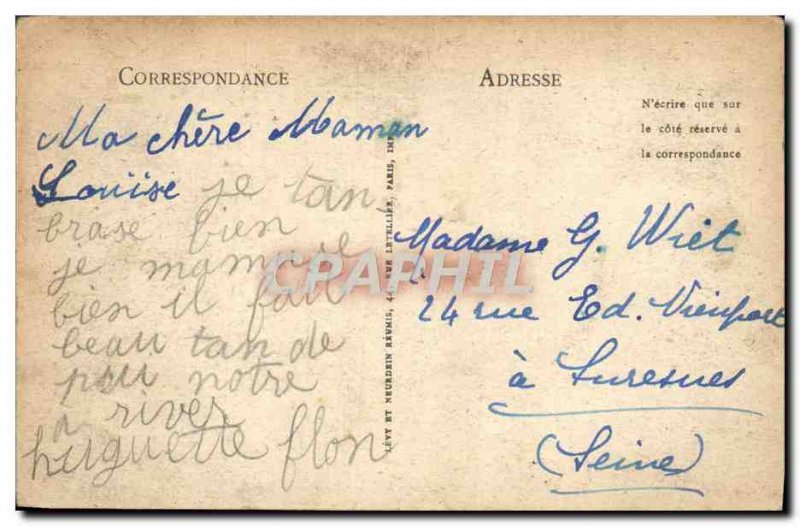 CORRESPONDANCE
Ma chère Maman
Louise je tan
brase bien
je mamuse
bien il fait
beau tan de
puu notre
a river
huguette flon
LÉVY ET NEURDEIN RÉUNIS, 44, RUE LETELLIER, PARIS, IMP.
ADRESSE
N'écrire que sur
le côté réservé à
la correspondance
Madame G. Wiet
24 rue Ed. Nieuport
à Suresnes
(Seine)
CPAPHIL